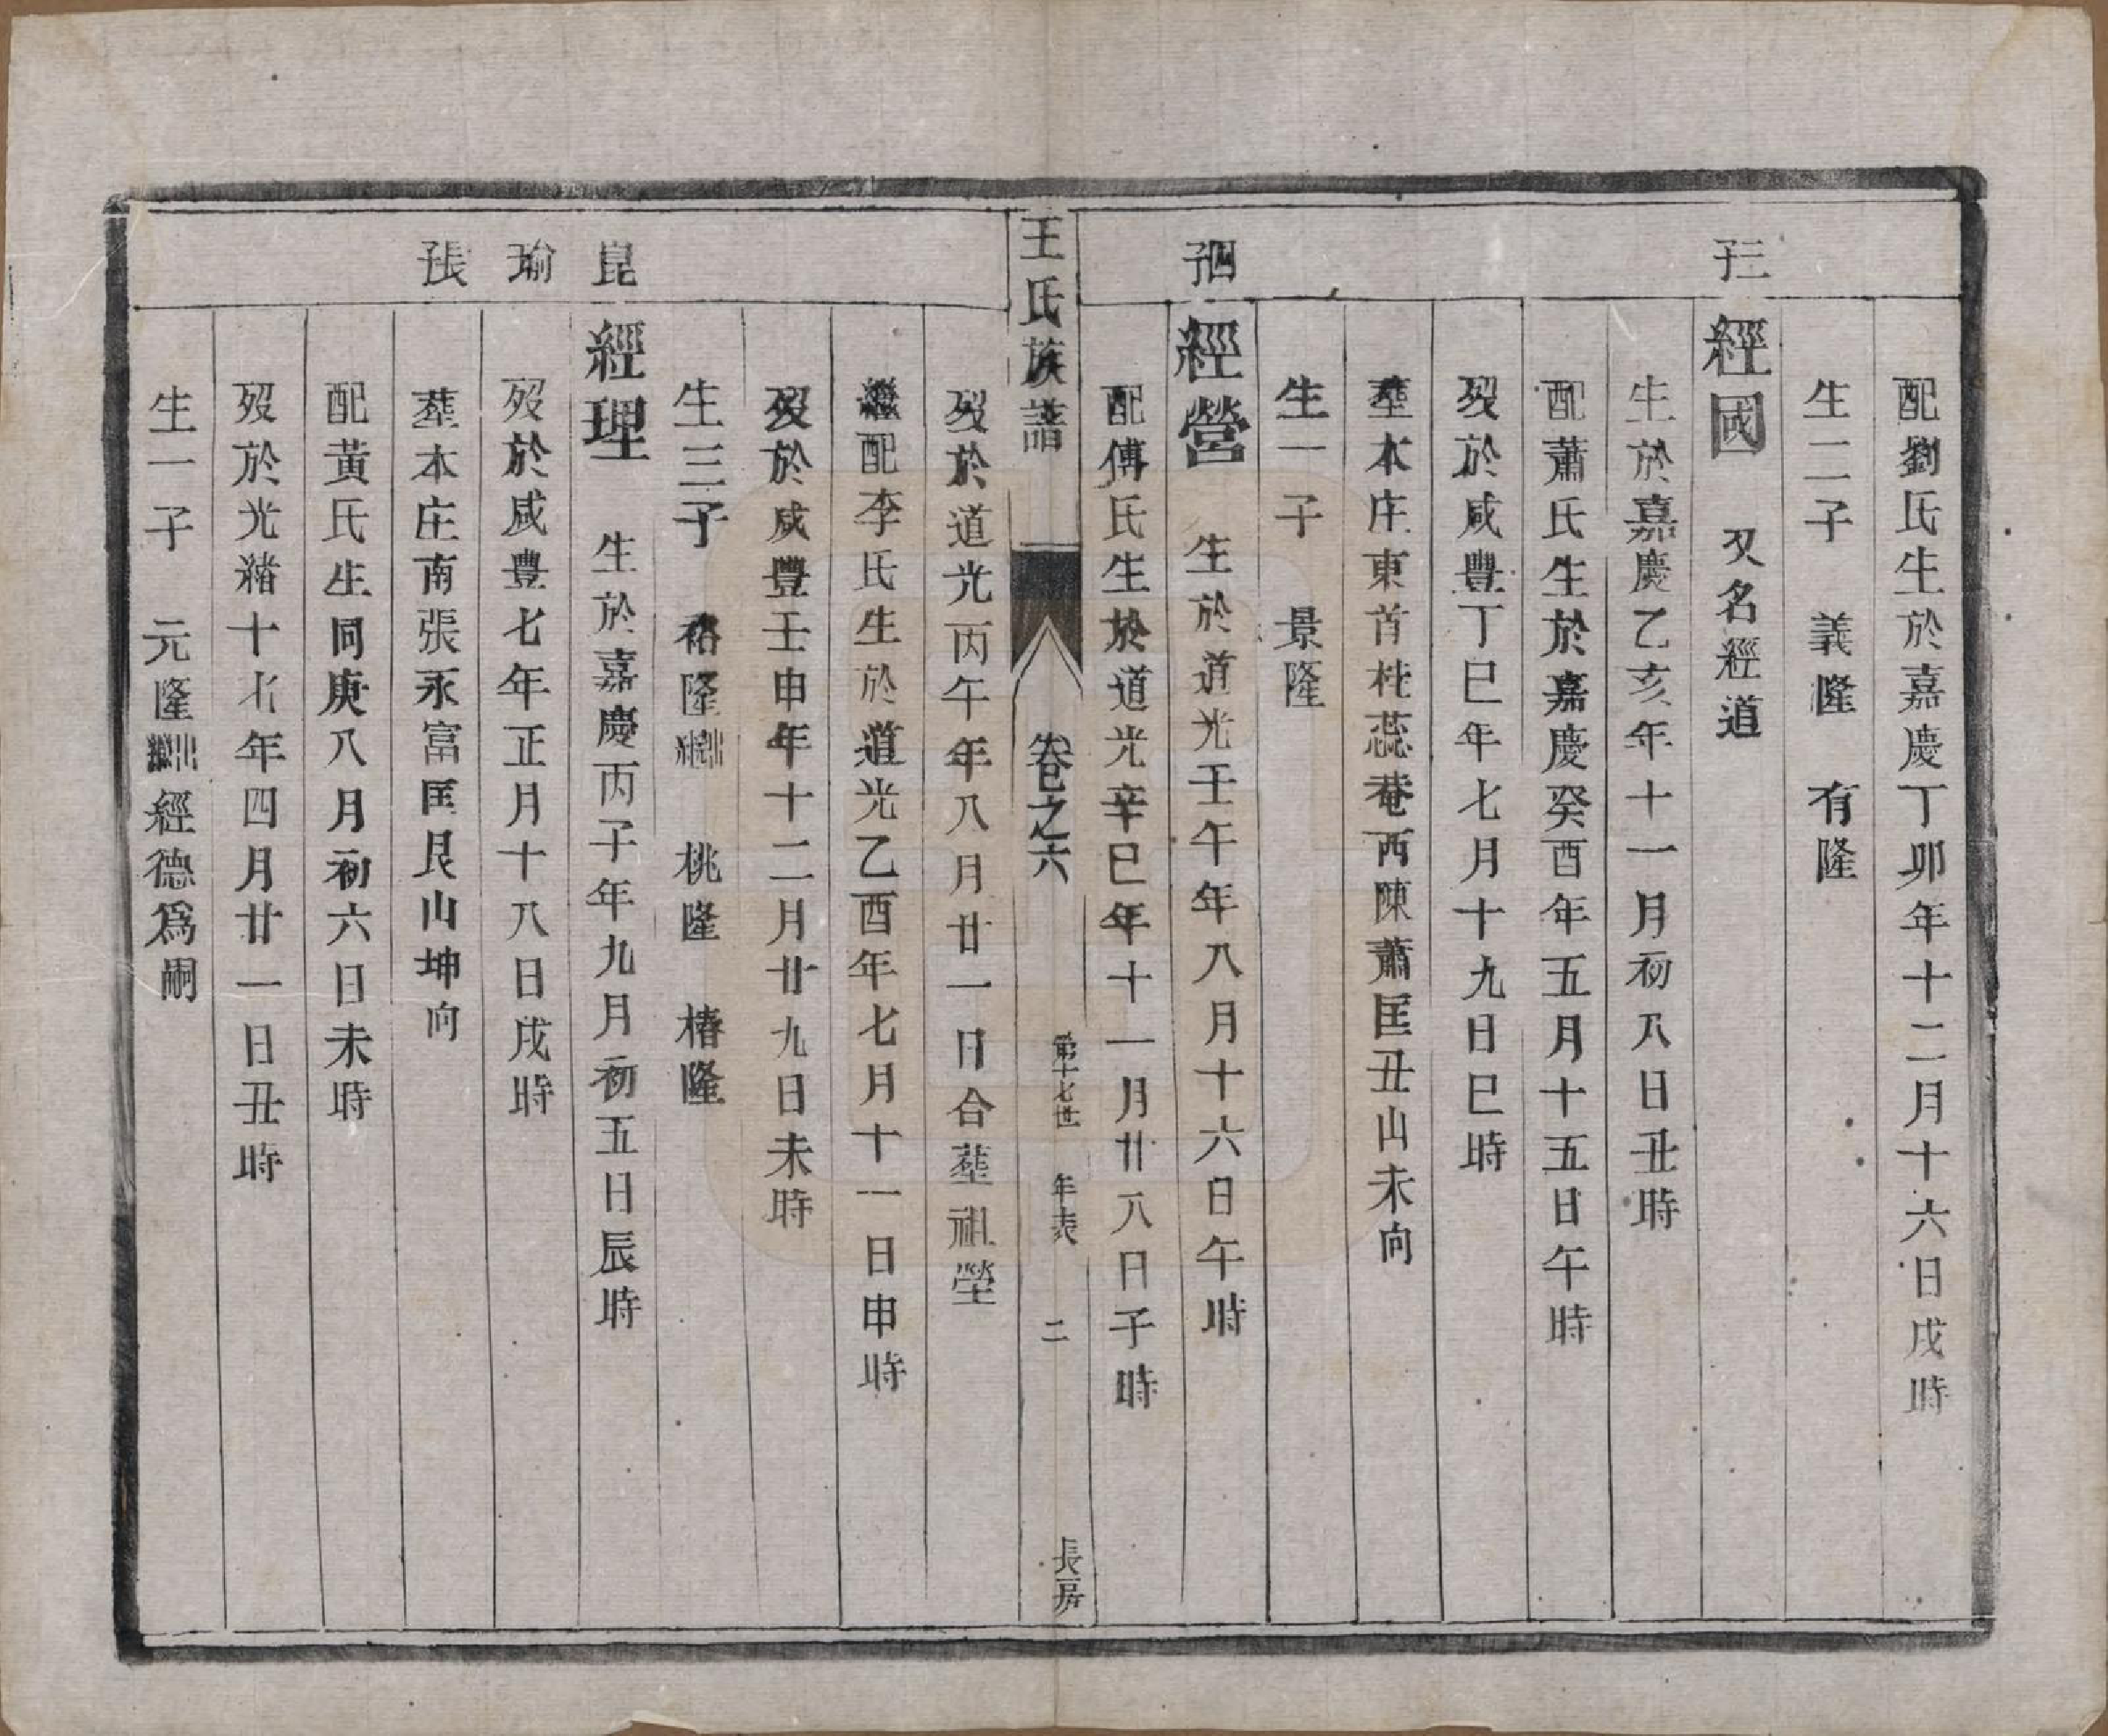 配劉氏生於嘉慶丁卯年十二月十六日戌時
生二子 義隆 有隆
三子
經國 又名經道
生於嘉慶乙亥年十一月初八日丑時
配蕭氏生於嘉慶癸酉年五月十五日午時
歿於咸豐丁巳年七月十九日巳時
塟本庄東首桂蕊菴西陳蕭匡丑山未向
生一子 景隆
四子
經營 生於道光壬午年八月十六日午時
配傅氏生於道光辛巳年十一月廿八日子時
王氏族譜 卷之六 第十七世 年表 二 長房
歿於道光丙午年八月廿一日合塟祖塋
繼配李氏生於道光乙酉年七月十一日申時
歿於咸豐壬申年十二月廿九日未時
生三子 裕隆出繼 桃隆 椿隆
崑瑜長子
經理 生於嘉慶丙子年九月初五日辰時
歿於咸豐七年正月十八日戌時
塟本庄南張永富匡艮山坤向
配黃氏生同庚八月初六日未時
歿於光緒十七年四月廿一日丑時
生一子 元隆出繼經德為嗣